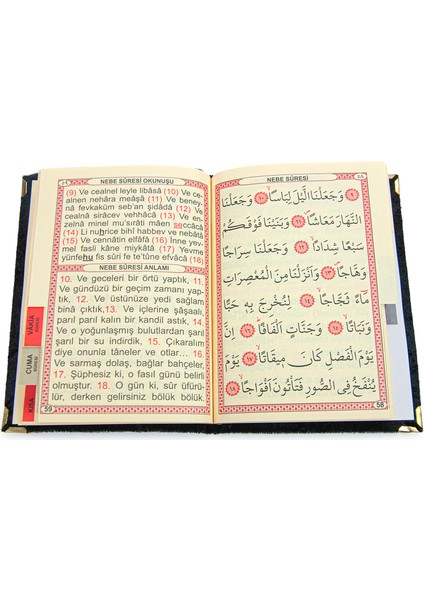 NEBE SÛRESİ OKUNUŞU
(9) Ve cealnel leyle libâsâ (10) Ve ce-
alnen nehâra meâşâ (11) Ve beney-
nâ fevkaküm seb'an şidâdâ (12) Ve
cealnâ sirâcev vehhâcâ (13) Ve en-
zelnâ minel mu'sırâti mâen seccâcâ
(14) Li nuhrice bihî habbev ve nebâtâ
(15) Ve cennâtin elfâfâ (16) İnne yev-
mel fasli kâne miykâtâ (17) Yevme
yünfehu fis sûri fe te'tûne efvâcâ (18)
NEBE SÛRESİ ANLAMI
10. Ve geceleri bir örtü yaptık, 11.
Ve gündüzü bir geçim zamanı yap-
tık, 12. Ve üstünüze yedi sağlam
binâ çıktık,13. Ve içlerine şâşaalı,
parıl parıl kalın bir kandil astık, 14.
Ve o yoğunlaşmış bulutlardan şarıl
şarıl bir su indirdik, 15. Çıkaralım
diye onunla tâneler ve otlar... 16.
Ve sarmaş dolaş, bağlar bahçeler.
17. Şüphesiz ki, o fasıl günü belirli
olmuştur. 18. O gün ki, sûr üfürü-
lür, derken gelirsiniz bölük bölük.
59
VAKIA
CUMA
KISA
NEBE SÛRESİ
٥٨
۝٩ وَجَعَلْنَا الَّيْلَ لِبَاسًا ۝١٠ وَجَعَلْنَا
النَّهَارَ مَعَاشًا ۝١١ وَبَنَيْنَا فَوْقَكُمْ
سَبْعًا شِدَادًا ۝١٢ وَجَعَلْنَا سِرَاجًا
وَهَّاجًا ۝١٣ وَاَنْزَلْنَا مِنَ الْمُعْصِرَاتِ
مَآءً ثَجَّاجًا ۝١٤ لِنُخْرِجَ بِهِ حَبًّا
وَنَبَاتًا ۝١٥ وَجَنَّاتٍ اَلْفَافًا ۝١٦ اِنَّ
يَوْمَ الْفَصْلِ كَانَ مِيقَاتًا ۝١٧ يَوْمَ
يُنْفَخُ فِى الصُّورِ فَتَاْتُونَ اَفْوَاجًا ۝١٨
58